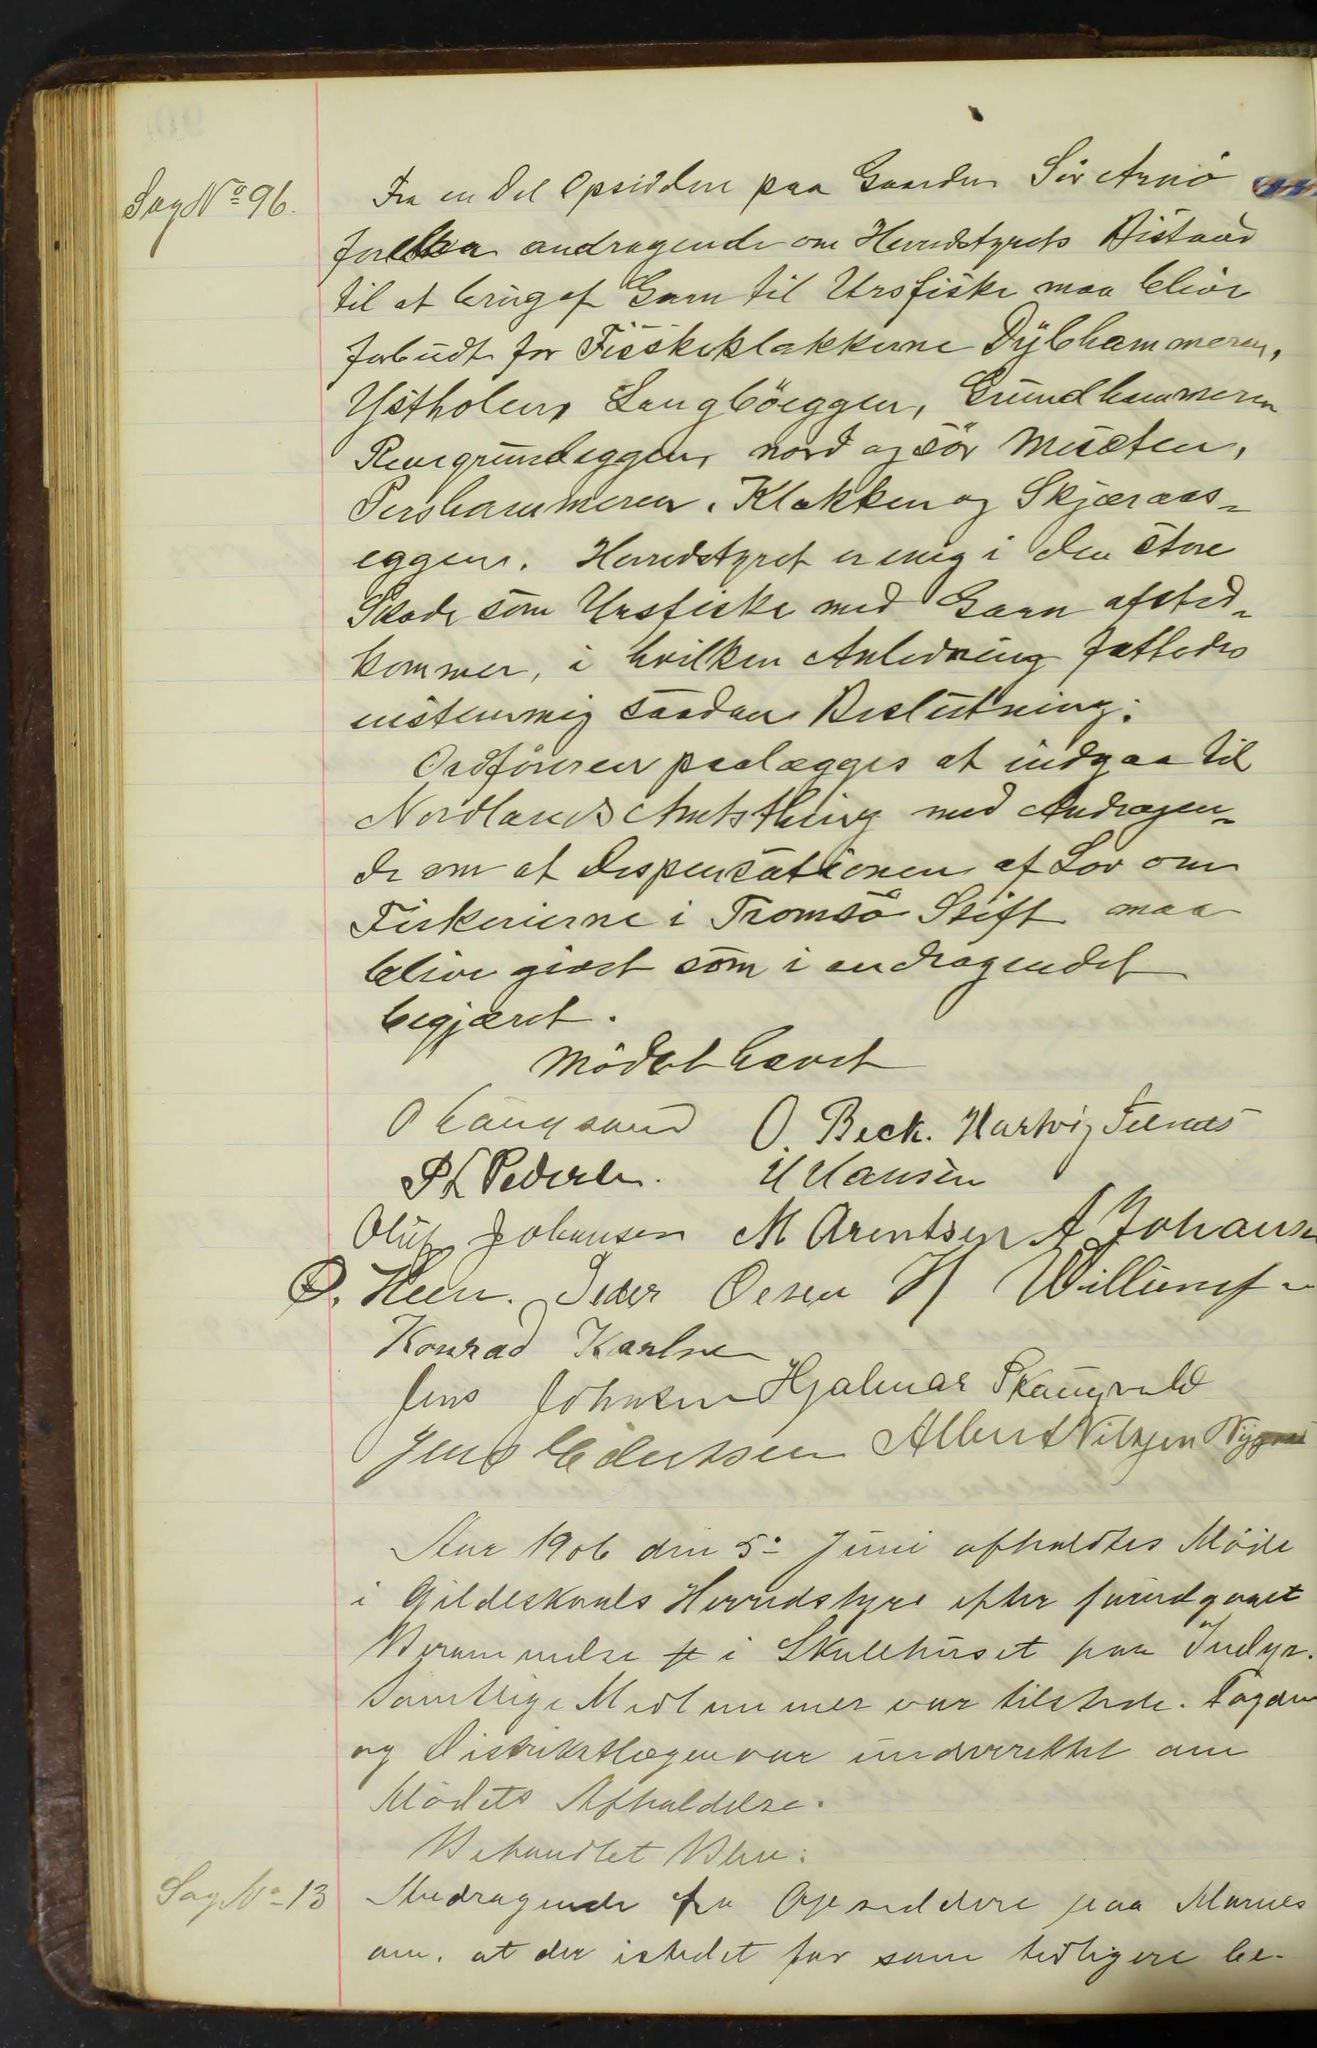 Sag No 96.
Fra en Del Opsiddere paa Gaarden Sör Arnö
foreslaa andragende om Herredstyrets Bistand
til at brug af Garn til Ursfiske maa blive
forbudt for Fisskeklakkerne Dybhammeren,
Ystholen, Langböeggen, Grundhammeren
Revegrundeggen, nord og sör Musten,
Pershammeren, Klakken og Skjæraas-
eggen. Herredstyret er enig i den store
Skade som Ursfiske med Garn afsted-
kommer, i hvilken Anledning fattedes
enstemmig saadan Beslutning:
Ordföreren paalægges at indgaa til
Nordlands Amtsthing med Andragen-
de om at Dispensationen af Lov om
Fiskerierne i Tromsö Stift maa
blive givet som i andragendet
begjæret.
Mödet hævet
O Langsand O. Beck. Hartvig
P L Pedersen. H Hansen
Oluf Johansen M Arentsen A Johansen
O. Heen. Peder Olsen H Willumsen
Konrad Karlsen
Jens Johnsen Hjalmar Skaugvold
Jens Edvartsen Albert Nilsen Nygaard
Aar 1906 den 5te Juni afholdtes Möde
i Gildeskaals Herredstyre efter forudgaaet
Berammelse i Skolehuset paa Inndyr.
Samtlige Medlemmer var tilstede. Fogden
og Distriktslægen var underrettet om
Mödets Afholdelse.
Behandlet Blev:
Sag No 13
Andragende fra Opsiddere paa Marnes
om, at der istedet for som tidligere be-